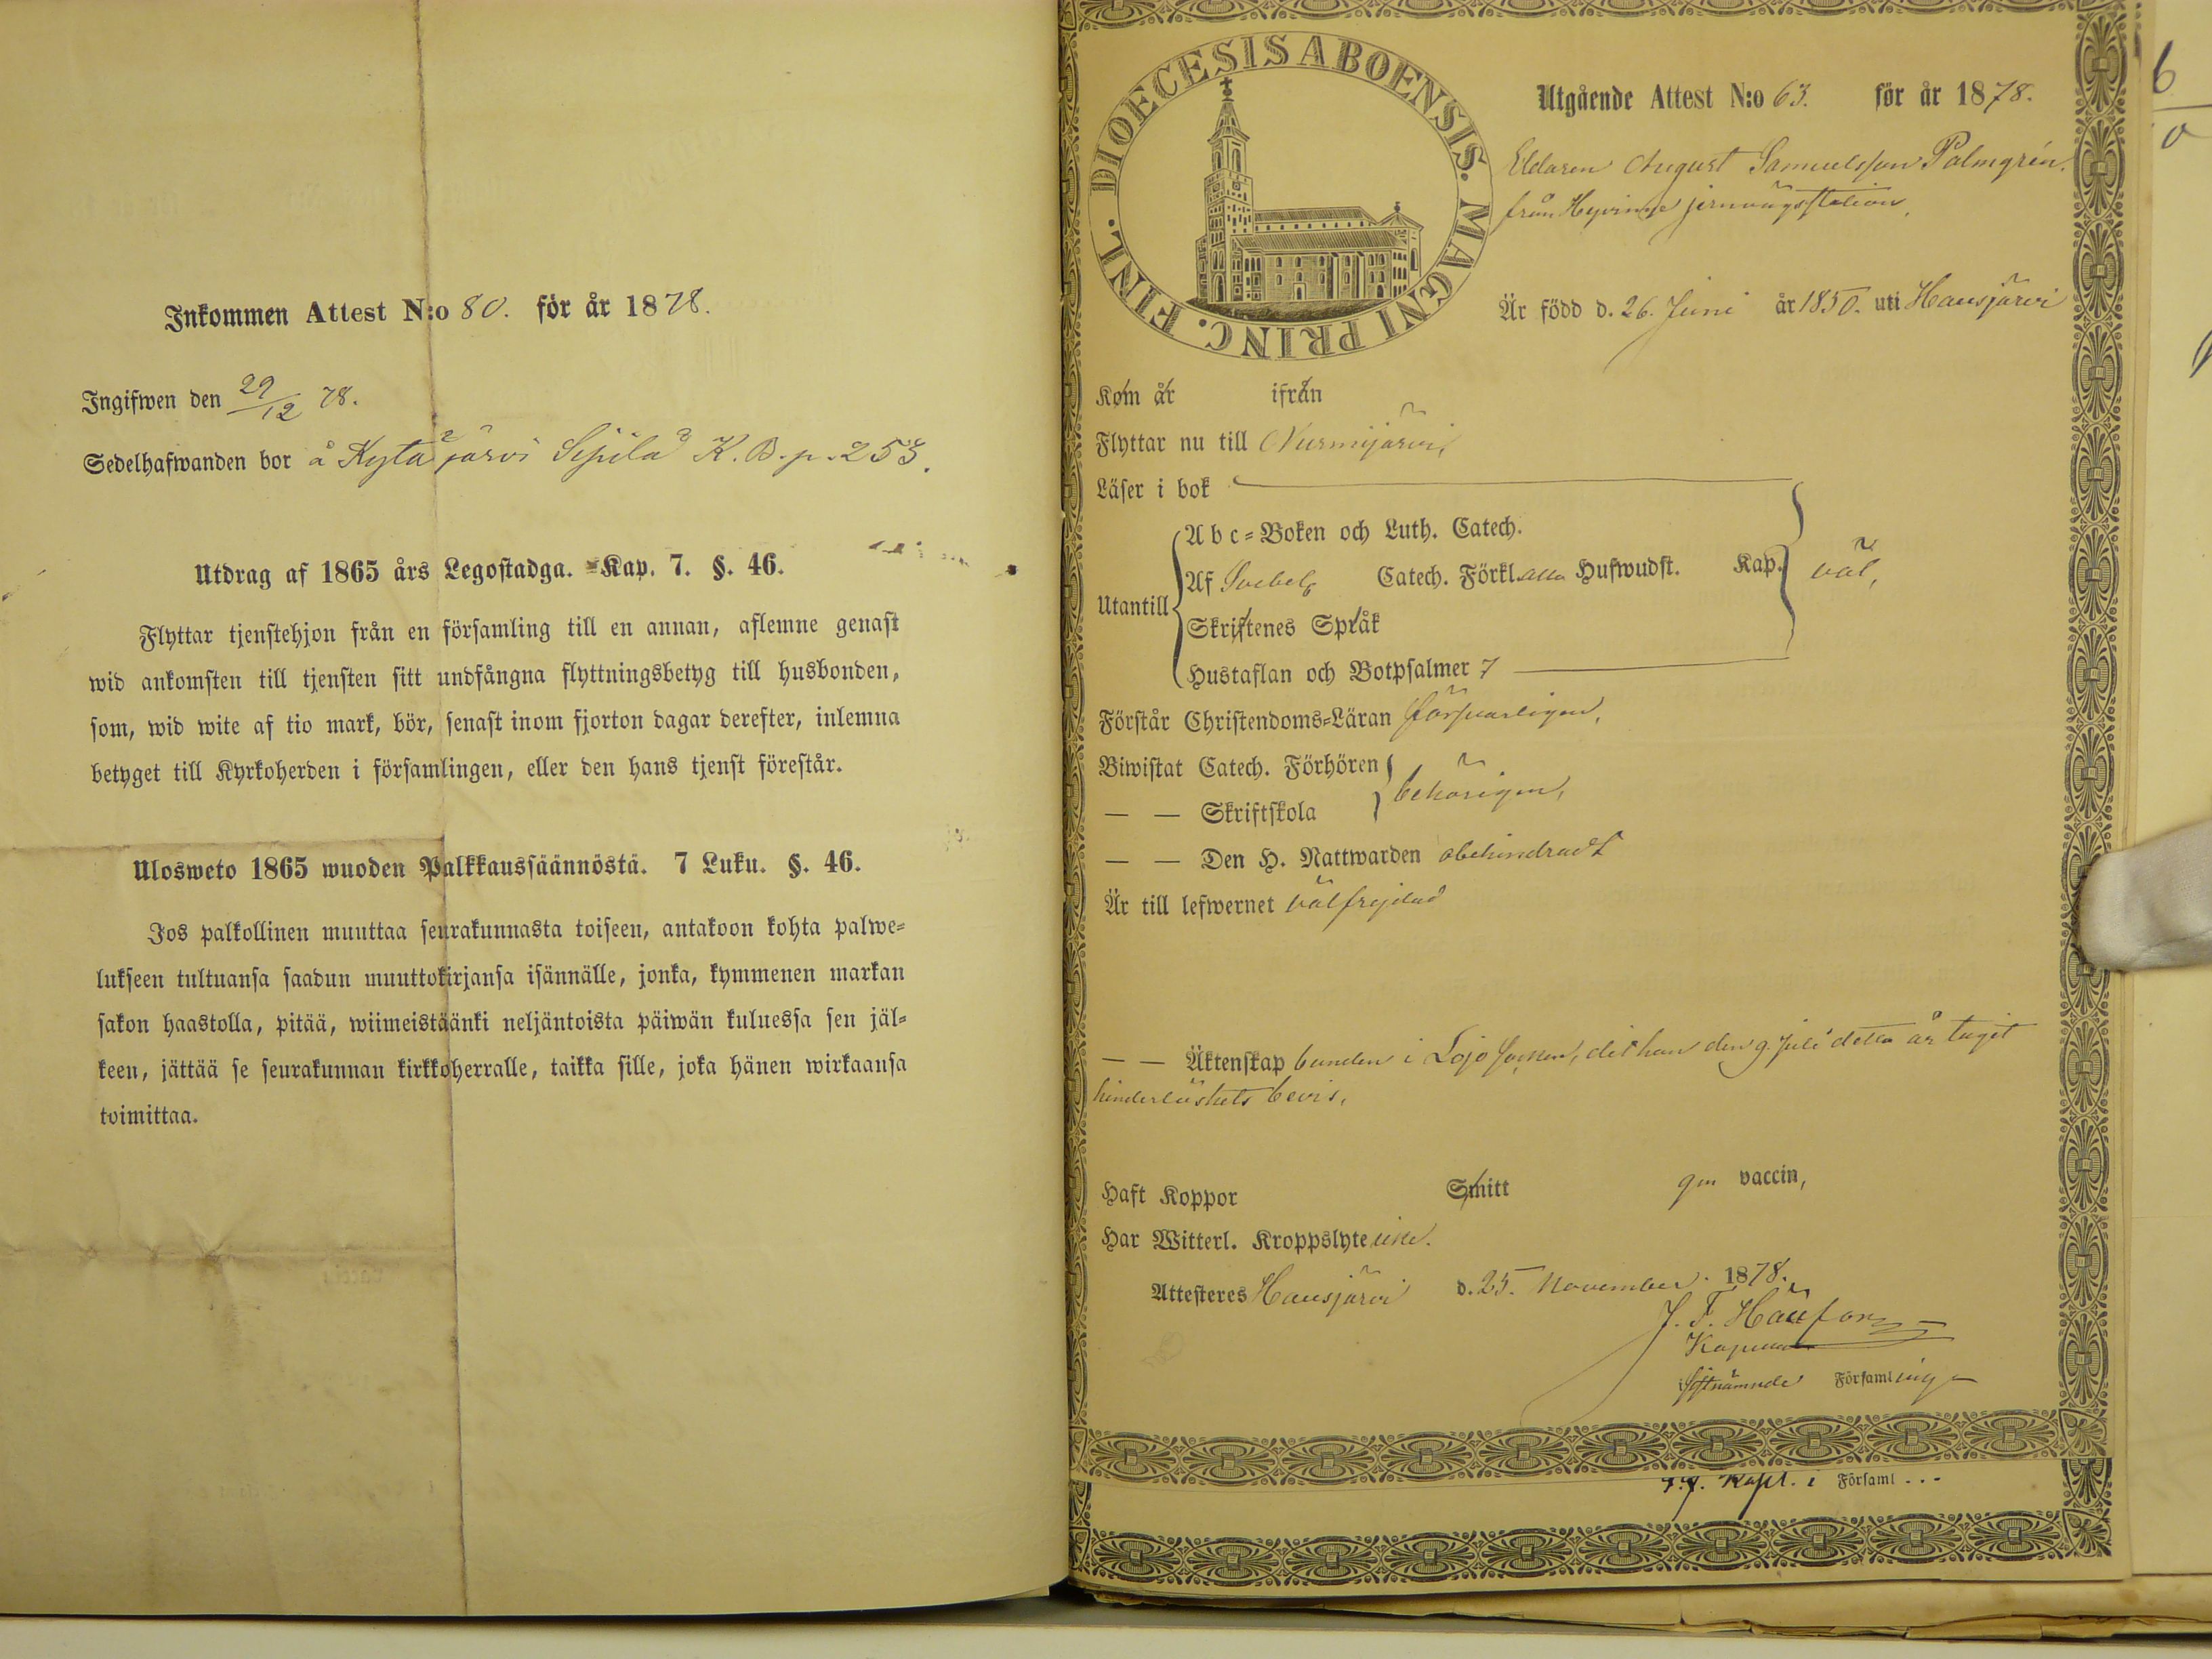 Inkommen Attest N:o 80. för år 1878.
Ingifwen den 29/12 78.
Sedelhafwanden bor å Kytäjärvi Sepilä K. B. p. 253.
Utdrag af 1865 års Legostadga. Kap. 7. §. 46.
Flyttar tjenstehjon från en församling till en annan, aflemne genast
wid ankomsten till tjensten sitt undfångna flyttningsbetyg till husbonden,
som, wid wite af tio mark, bör, senast inom fjorton dagar derefter, inlemna
betyget till Kyrkoherden i församlingen, eller den hans tjenst förestår.
Ulosweto 1865 wuoden Palkkaussäännöstä. 7 Luku. §. 46.
Jos palkollinen muuttaa seurakunnasta toiseen, antakoon kohta palwe-
lukseen tultuansa saadun muuttokirjansa isännälle, jonka, kymmenen markan
sakon haastolla, pitää, wiimeistäänki neljäntoista päiwän kuluessa sen jäl-
keen, jättää se seurakunnan kirkkoherralle, taikka sille, joka hänen wirkaansa
toimittaa.
DIOECESIS ABOENSIS. MAGNI PRINC. FINL.
Utgående Attest N:o 63. för år 1878.
Eldaren August Samuelsson Palmgrén.
från Hyvinge jernvägsstation,
Är född d. 26. Juni år 1850. uti Hausjärvi
Kom år ifrån
Flyttar nu till Nurmijärvi,
Läser i bok
Abc-Boken och Luth. Catech.
Af Svebel Catech. Förkl. alla Hufwudst. Kap. väl,
Utantill
Skriftenes Språk
Hustaflan och Botpsalmer 7
Förstår Christendoms-Läran försvarligen,
Biwistat Catech. Förhören behörigen,
— — Skriftskola
— — Den H. Nattwarden obehindradt
Är till lefwernet välfrejdad
— — Äktenskap bunden i Lojo socken, dit han den 9. Juli detta år tagit
hinderlöshets bevis,
Haft Koppor Smitt gm vaccin,
Har Witterl. Kroppslyte icke.
Attesteres Hausjärvi d. 25. November 1878.
J. F.
Kapellan
i ofvannämnde Församling
Kapl. i Församl...